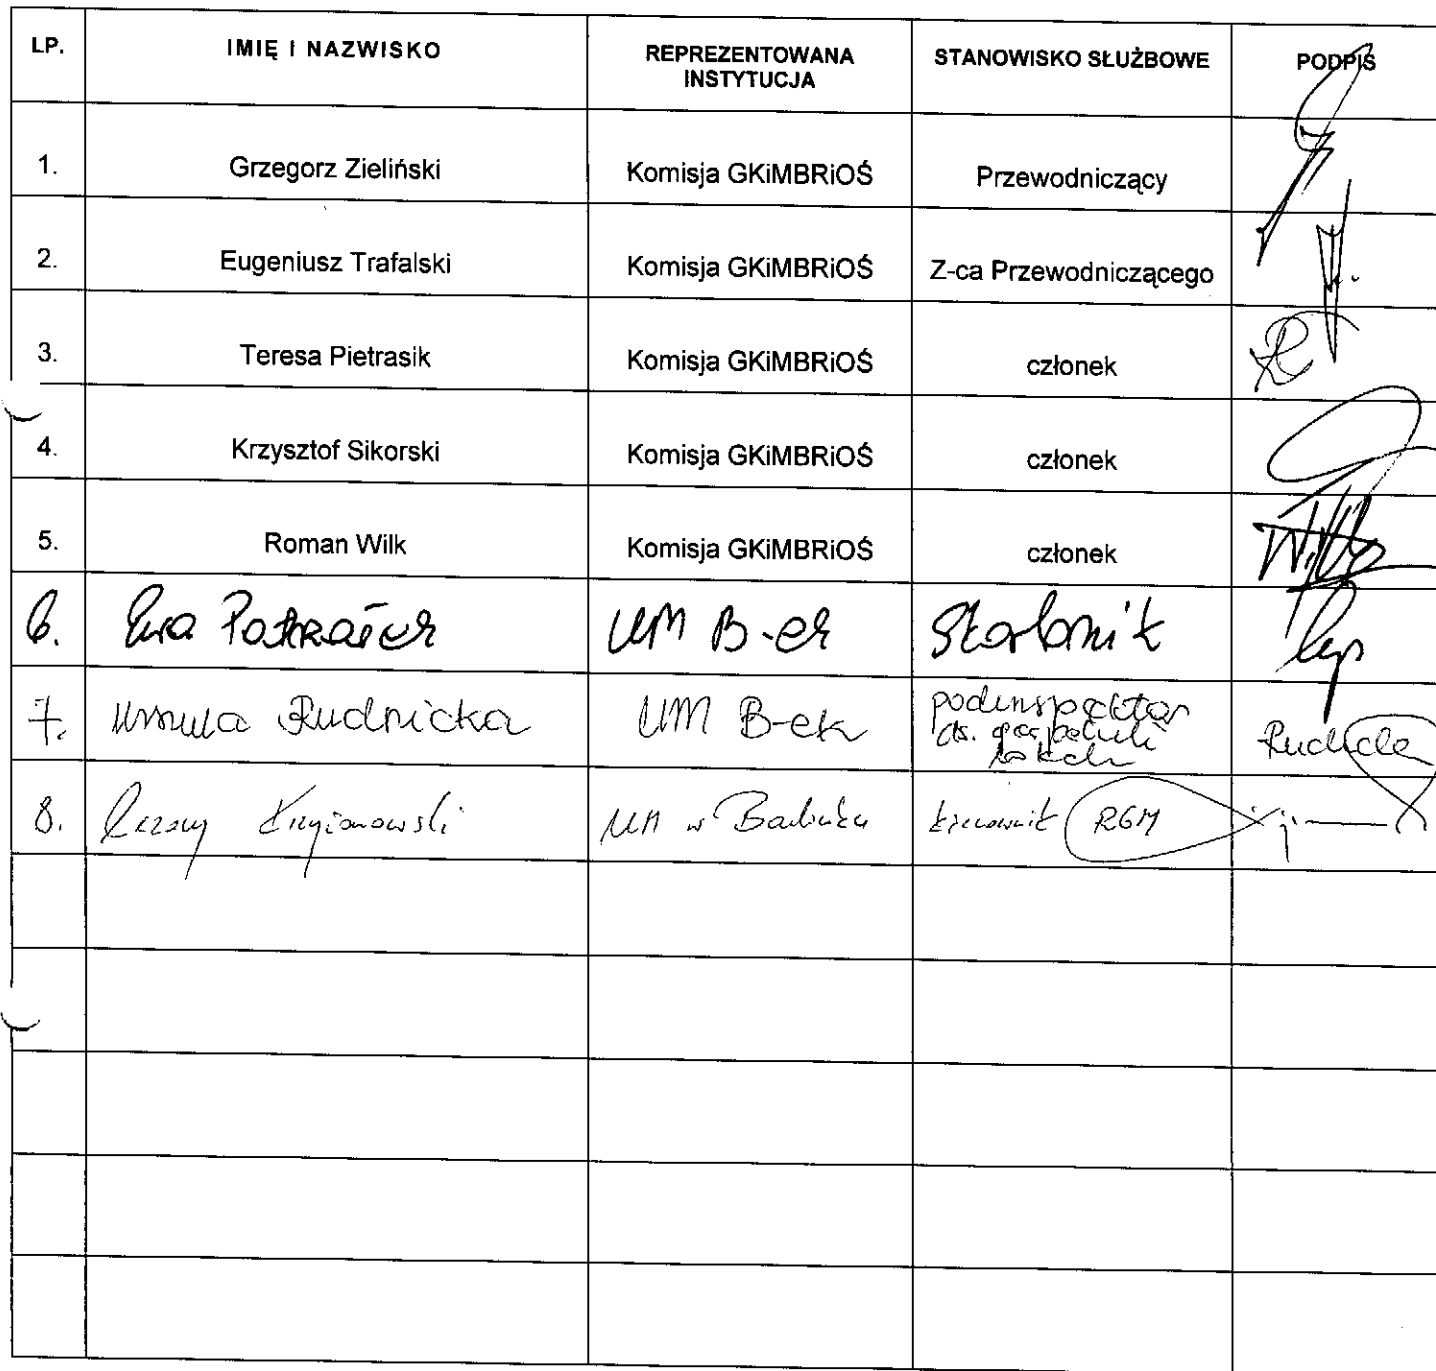 LP. IMIĘ I NAZWISKO REPREZENTOWANA INSTYTUCJA STANOWISKO SŁUŻBOWE PODPIS
1. Grzegorz Zieliński Komisja GKiMBRiOŚ Przewodniczący
2. Eugeniusz Trafalski Komisja GKiMBRiOŚ Z-ca Przewodniczącego
3. Teresa Pietrasik Komisja GKiMBRiOŚ członek
4. Krzysztof Sikorski Komisja GKiMBRiOŚ członek
5. Roman Wilk Komisja GKiMBRiOŚ członek
6. Ewa UM B-ek Skarbnik
7. Urszula Rudnicka UM B-ek podinspektor
ds.
8. Cezary Krzyżanowski UM w Barlinku kierownik RGM